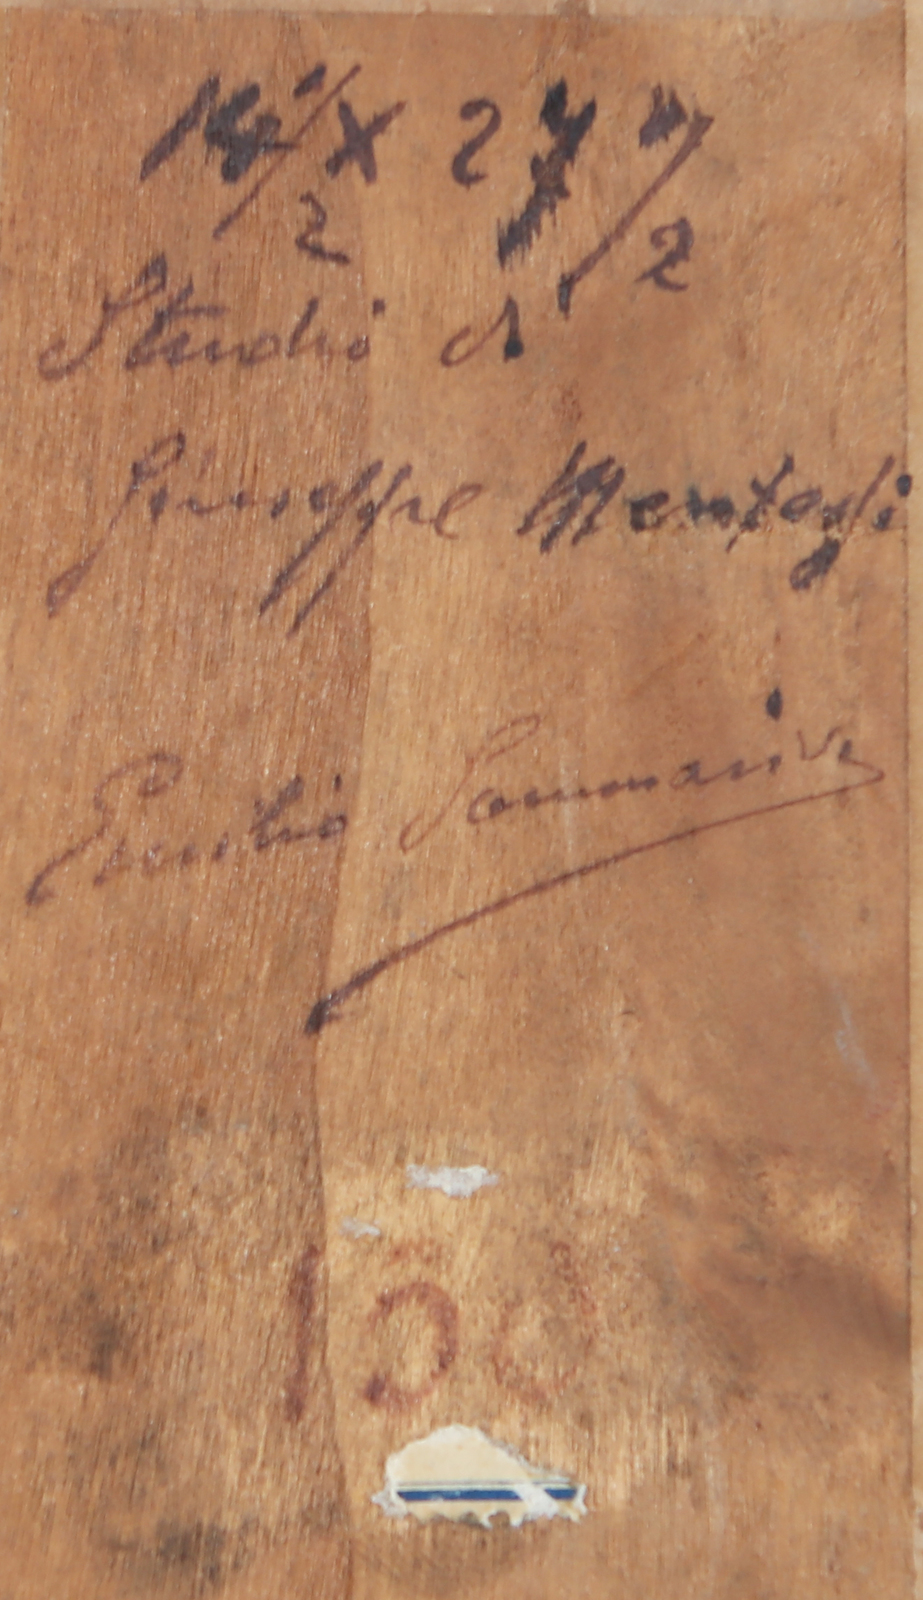 14 1/2 X 27 1/2
Studio di
Giuseppe Mentessi
Emilio Sommariva
150